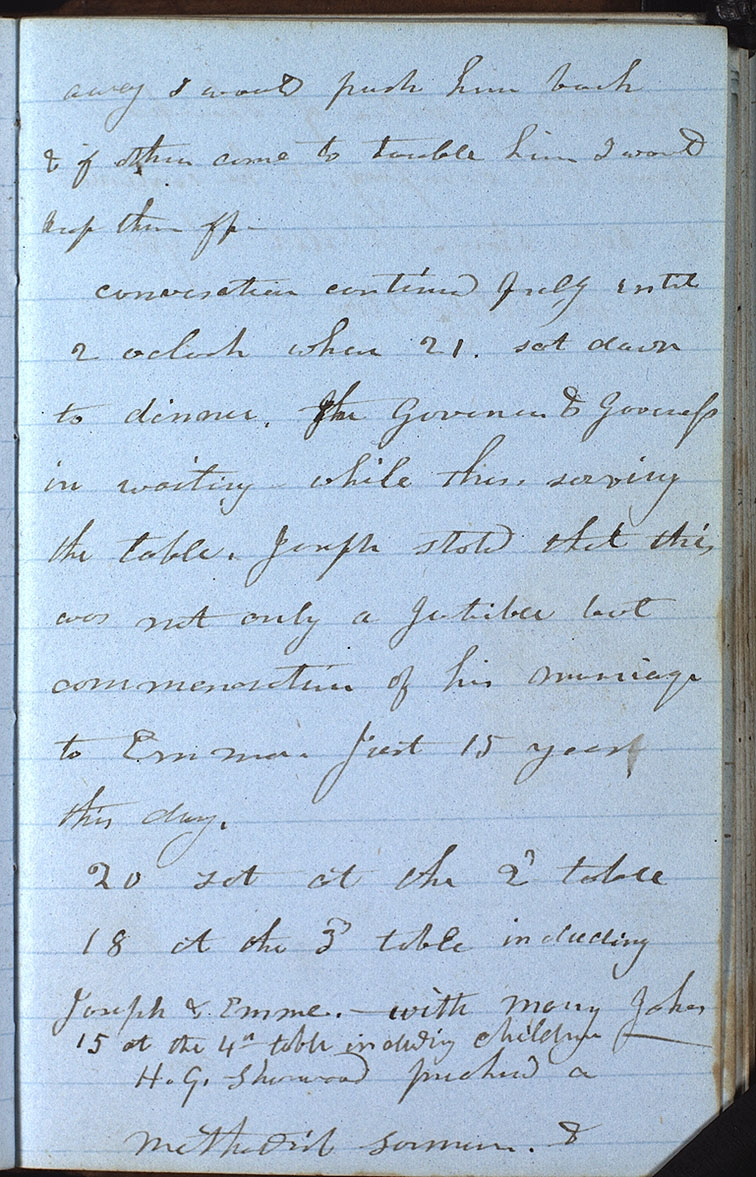 away I would push him back
& if others come to trouble him I would
keep them off.
conversation continud freely until
2 oclock when 21. sat down
to dinner. the Govener & Governess
in waiting while thus. serving
the table. Joseph stated that this
was not only a Jubilee but
commemoration of his marriage
to Emma. Just 15 years
this day.
20 sat at the 2d table
18 at the 3d table including
Joseph & Emma. - with many Jokes
15 at the 4th table including children
H. G. Sherwood preched a
methodist sermon. &